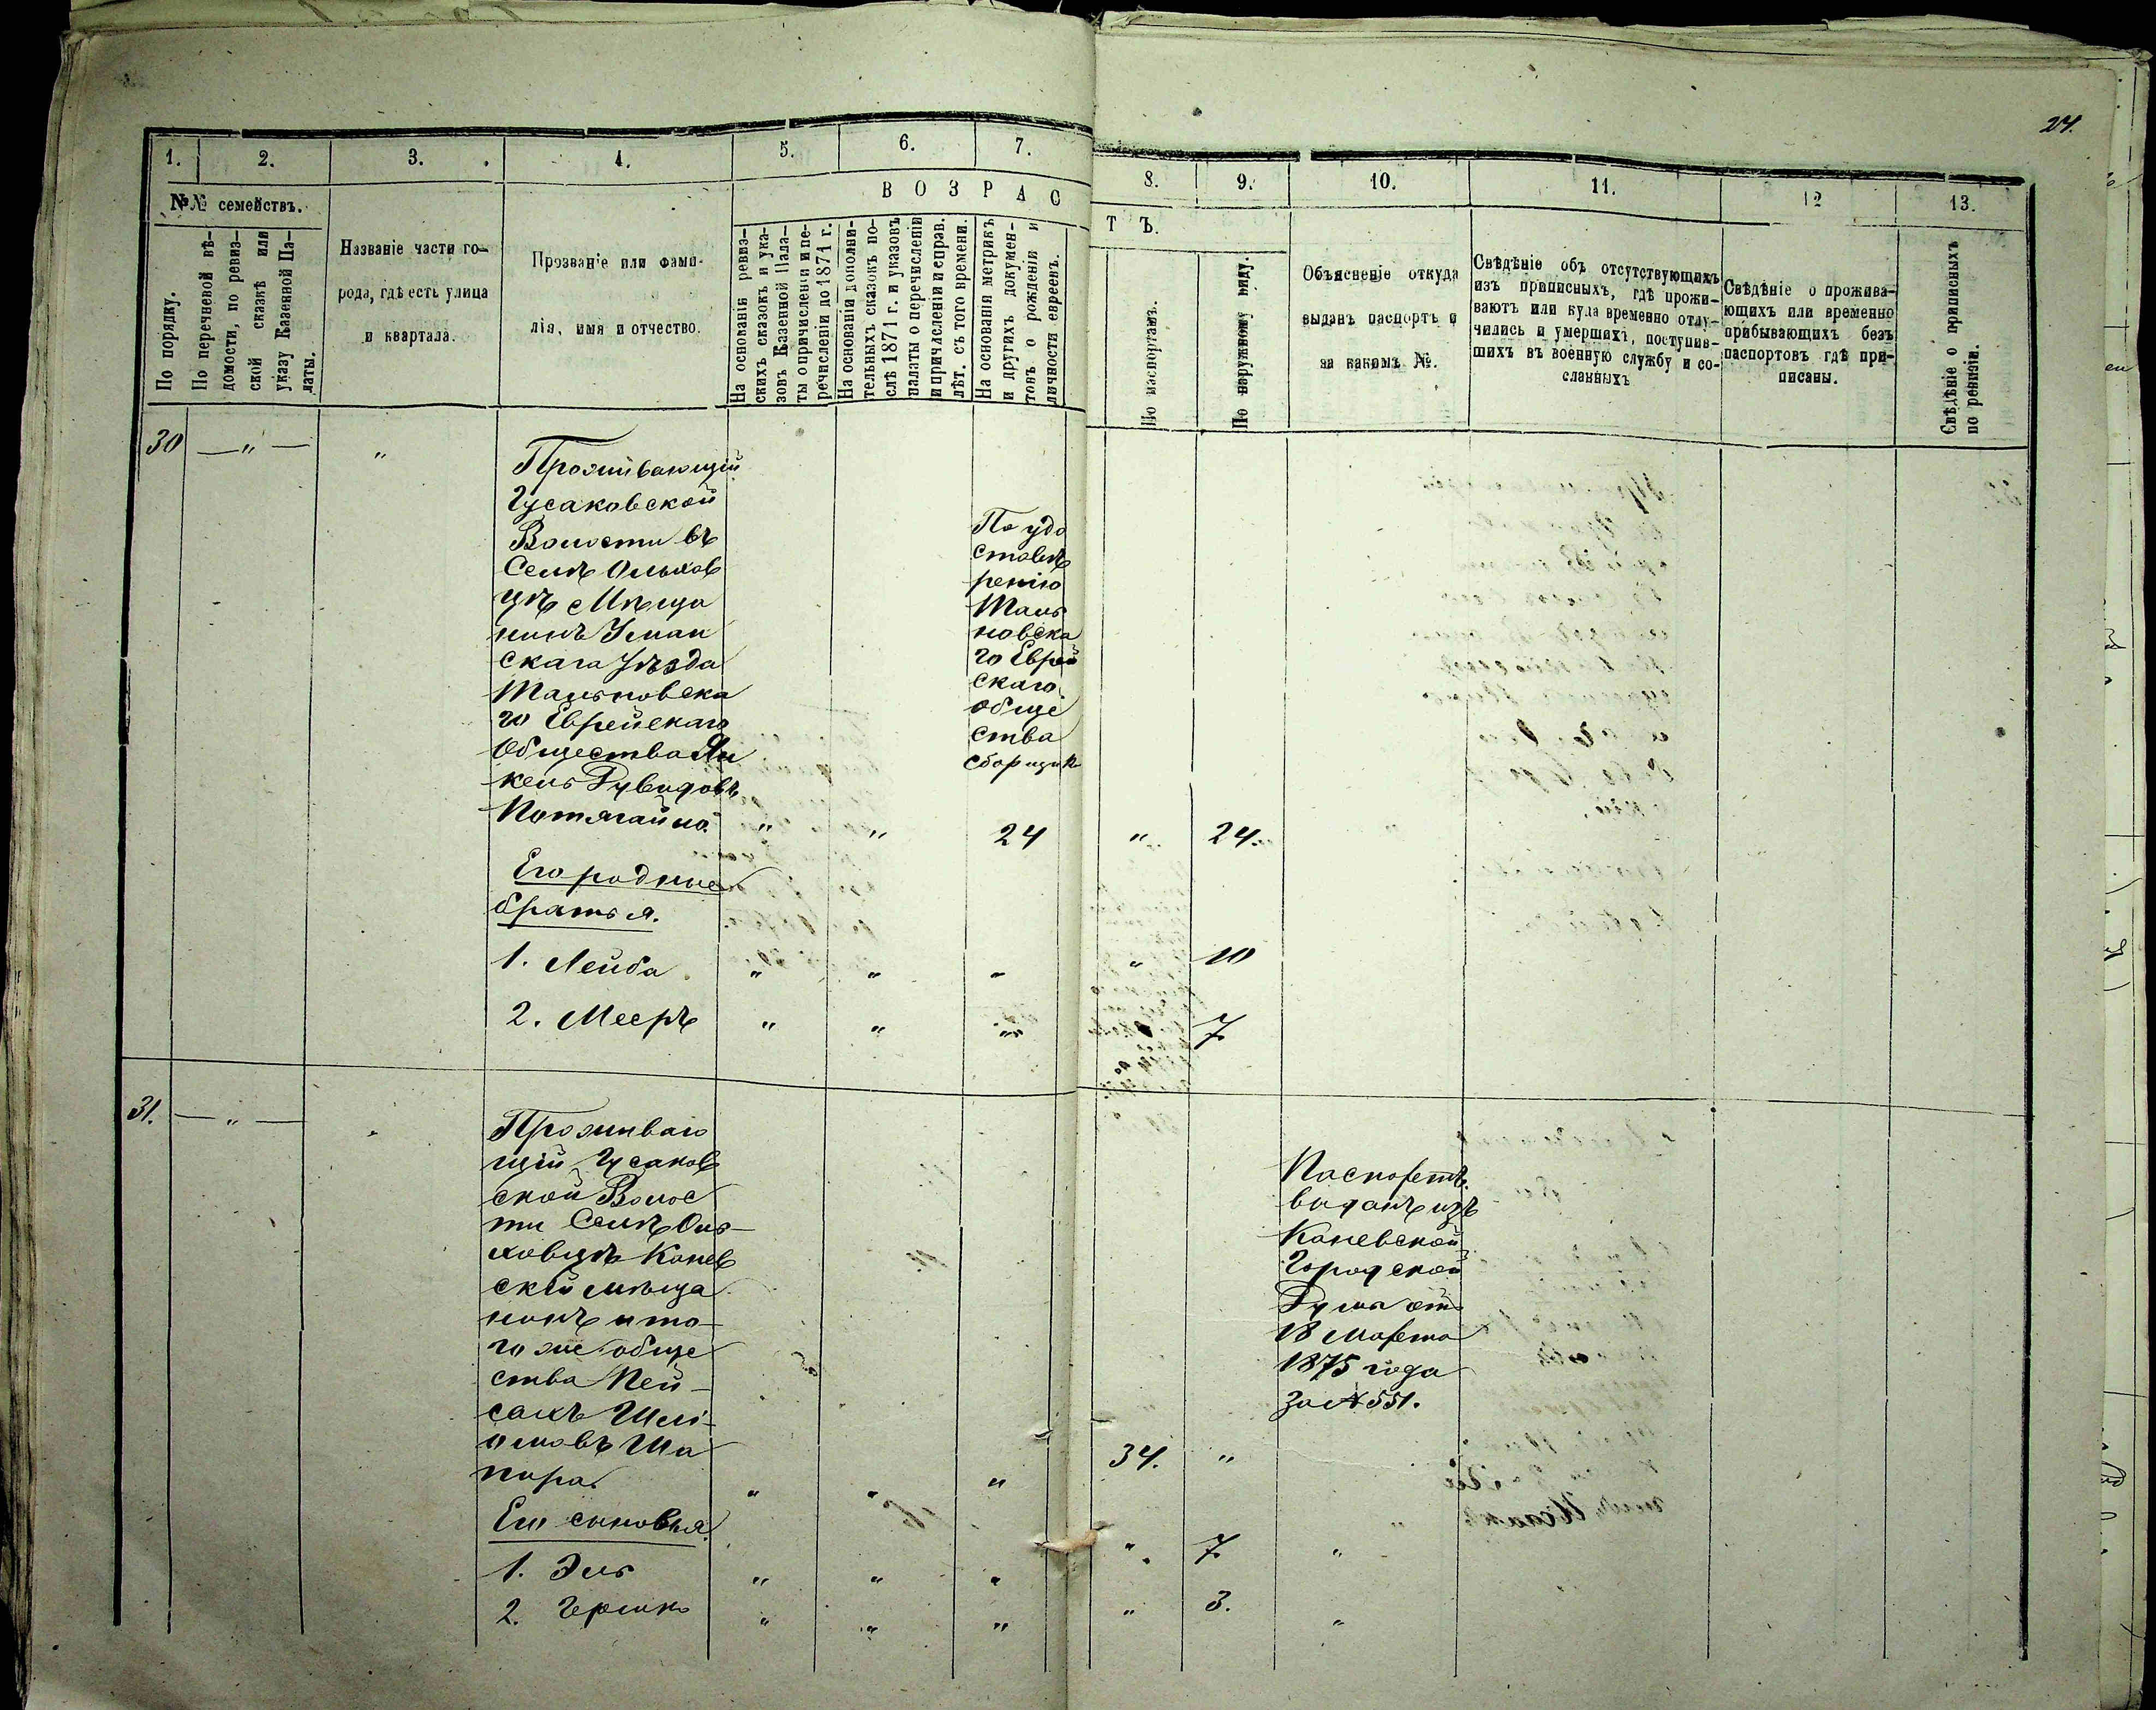 24.
1.
2.
3.
4.
5.
6.
7.
8.
9.
10.
11.
12
13.
№№ семействъ.
По порядку.
По перечневой вѣ-
домости, по ревиз-
ской сказкѣ или
указу Казенной Па-
латы.
Названіе части го-
рода, гдѣ есть улица
и квартала.
Прозваніе или фами-
лія, имя и отчество.
ВОЗРАС
Т Ъ.
На основаніи ревиз-
скихъ сказокъ и ука-
зовъ Казенной Пала-
ты о причисленіи и пе-
речисленіи до 1871 г.
На основаніи дополни-
тельныхъ сказокъ по-
слѣ 1871 г. и указовъ
палаты о перечисленіи
и причисленіи и справ.
лѣт. съ того времени.
На основаніи метрикъ
и другихъ докумен-
товъ о рожденіи и
личности евреевъ.
По паспортамъ.
По наружному виду.
Объясненіе откуда
выданъ паспортъ и
за какимъ №.
Свѣдѣніе объ отсутствующихъ
изъ приписныхъ, гдѣ прожи-
ваютъ или куда временно отлу-
чились и умершихъ, поступив-
шихъ въ военную службу и со-
сланныхъ
Свѣдѣніе о прожива-
ющихъ или временно
прибывающихъ безъ
паспортовъ гдѣ при-
писаны.
Свѣдѣніе о приписныхъ
по ревизіи.
30 — " — "
Проживающій
Гусаковской
Волости въ
Селѣ Ольхов
цѣ Мѣща
нинъ Уман
скаго Уѣзда
Тальновска
го Еврейскаго
Общества Ян
кель Дувидовъ
Потягайло. " "
По удо
стовѣ
ренію
Таль
новска
го Еврей
скаго
обще
ства
сборщик
24 " 24.
Его родные
братья.
1. Лейба " " " " 10
2. Мееръ " " " 7
31. — " —
Проживаю
щій Гусаков
ской Волос
ти Селѣ Оль-
ховцѣ Канев
скій мѣща
нинъ и то-
го же обще
ства Пей-
сахъ Шлі-
омовъ Ша
пира. " " " 34. "
Паспортъ
выданъ изъ
Каневской
Городской
Думы отъ
18 Марта
1875 года
за № 551.
Его сыновья.
1. Эль " " " " 7 "
2. Гершко " " " " 3. "